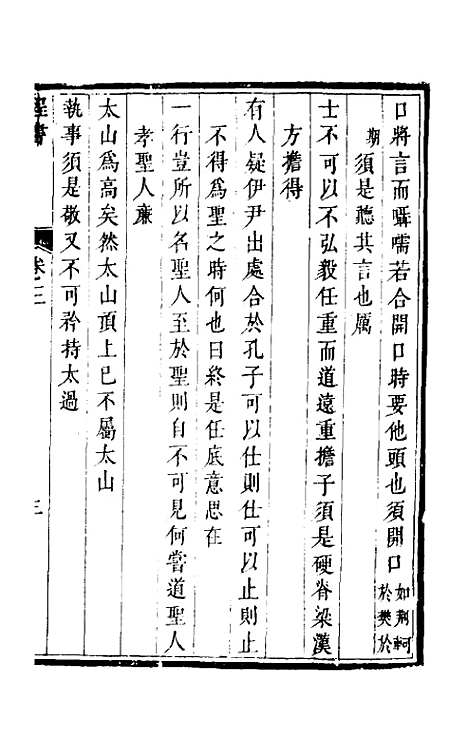 口將言而囁嚅若合開口時要他頭也須開口如荆軻於樊於
期須是聽其言也厲
士不可以不弘毅任重而道遠重擔子須是硬脊梁漢
方擔得
有人疑伊尹出處合於孔子可以仕則仕可以止則止
不得爲聖之時何也曰終是任底意思在
一行豈所以名聖人至於聖則自不可見何嘗道聖人
孝聖人廉
太山爲高矣然太山頂上已不屬太山
執事須是敬又不可矜持太過
卷三
三